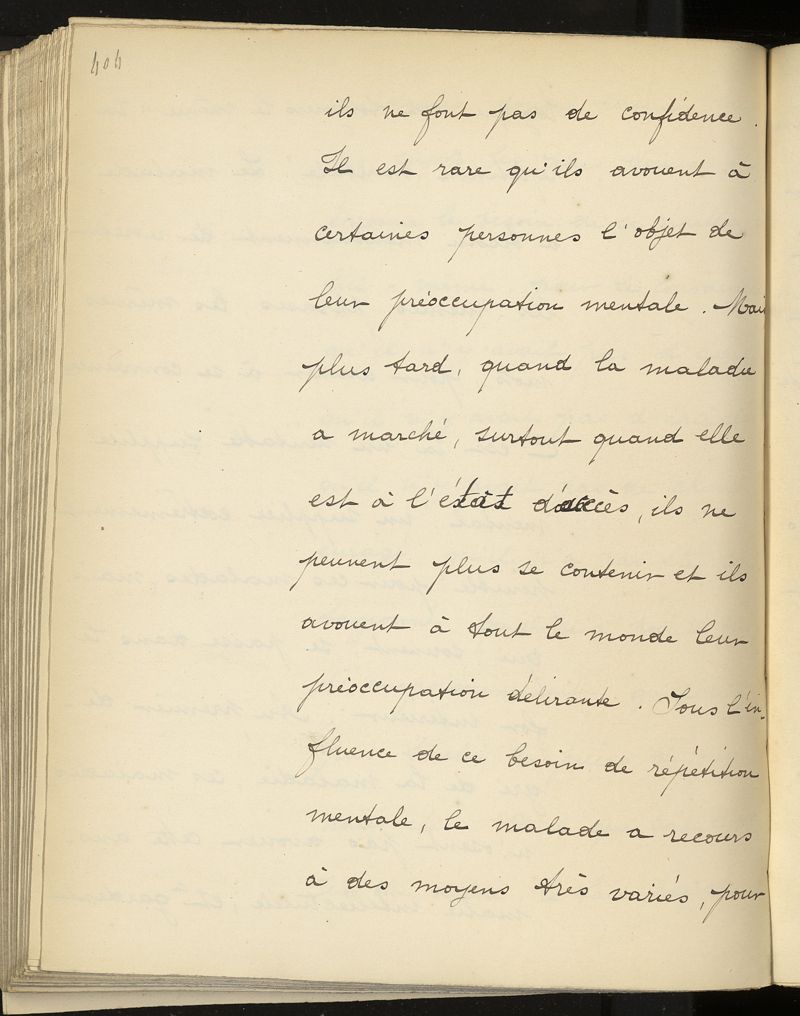 404
ils ne font pas de confidence.
Il est rare qu'ils avouent à
certaines personnes l'objet de
leur préoccupation mentale. Mais
plus tard, quand la maladie
a marché, surtout quand elle
est à l'état d'accès, ils ne
peuvent plus se contenir et ils
avouent à tout le monde leur
préoccupation délirante. Sous l'in-
fluence de ce besoin de répétition
mentale, le malade a recours
à des moyens très variés, pour